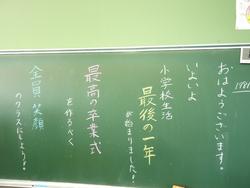 おはようございます。
いよいよ
小学校生活
最後の一年
が始まりました!
最高の卒業式
を作るべく
全員笑顔
のクラスにしよう!